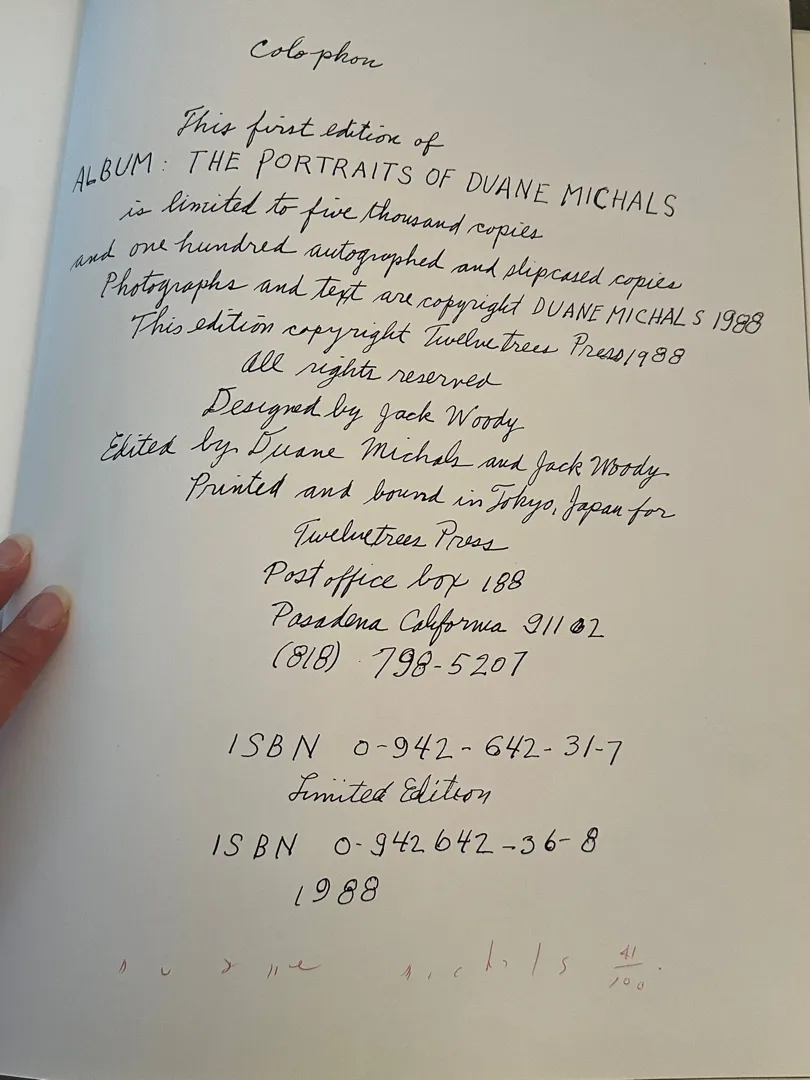 Colophon
This first edition of
ALBUM: THE PORTRAITS OF DUANE MICHALS
is limited to five thousand copies
and one hundred autographed and slipcased copies
Photographs and text are copyright DUANE MICHALS 1988
This edition copyright Twelvetrees Press 1988
All rights reserved
Designed by Jack Woody
Edited by Duane Michals and Jack Woody
Printed and bound in Tokyo, Japan for
Twelvetrees Press
Post office box 188
Pasadena California 91102
(818) 798-5207
ISBN 0-942-642-31-7
Limited Edition
ISBN 0-942642-36-8
1988
Duane Michals 41/100